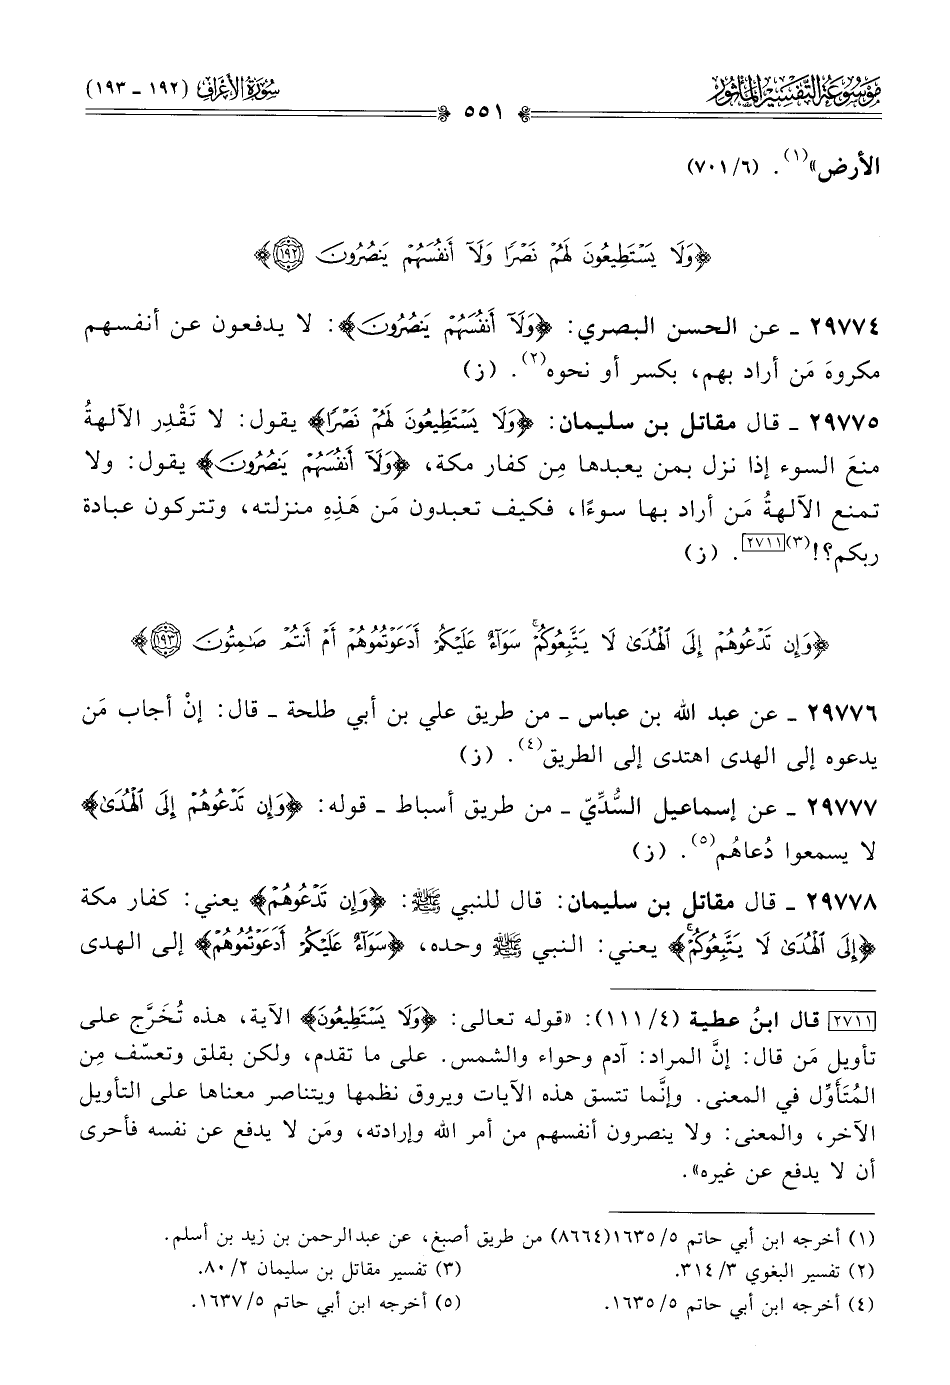 مَوْسُوعَة التَّفْسِير المَأثُور
سُورَةُ الأَعْرَافِ (١٩٢ - ١٩٣)
٥٥١
الأرض»(١). (٧٠١/٦)
﴿وَلَا يَسْتَطِيعُونَ لَهُمْ نَصْرًا وَلَآ أَنفُسَهُمْ يَنصُرُونَ ١٩٢﴾
٢٩٧٧٤ - عن الحسن البصري: ﴿وَلَآ أَنفُسَهُمْ يَنصُرُونَ﴾: لا يدفعون عن أنفسهم
مكروهَ مَن أراد بهم، بكسر أو نحوه(٢). (ز)
٢٩٧٧٥ - قال مقاتل بن سليمان: ﴿وَلَا يَسْتَطِيعُونَ لَهُمْ نَصْرًا﴾ يقول: لا تَقْدِر الآلهةُ
منعَ السوء إذا نزل بمن يعبدها مِن كفار مكة، ﴿وَلَآ أَنفُسَهُمْ يَنصُرُونَ﴾ يقول: ولا
تمنع الآلهةُ مَن أراد بها سوءًا، فكيف تعبدون مَن هَذِهِ منزلته، وتتركون عبادة
ربكم؟!(٣)[٢٧١١]. (ز)
﴿وَإِن تَدْعُوهُمْ إِلَى ٱلْهُدَىٰ لَا يَتَّبِعُوكُمْۚ سَوَآءٌ عَلَيْكُمْ أَدَعَوْتُمُوهُمْ أَمْ أَنتُمْ صَـٰمِتُونَ ١٩٣﴾
٢٩٧٧٦ - عن عبد الله بن عباس - من طريق علي بن أبي طلحة - قال: إنْ أجاب مَن
يدعوه إلى الهدى اهتدى إلى الطريق(٤). (ز)
٢٩٧٧٧ - عن إسماعيل السُّدِّيّ - من طريق أسباط - قوله: ﴿وَإِن تَدْعُوهُمْ إِلَى ٱلْهُدَىٰ﴾
لا يسمعوا دُعاهُم(٥). (ز)
٢٩٧٧٨ - قال مقاتل بن سليمان: قال للنبي ﷺ: ﴿وَإِن تَدْعُوهُمْ﴾ يعني: كفار مكة
﴿إِلَى ٱلْهُدَىٰ لَا يَتَّبِعُوكُمْۚ﴾ يعني: النبي ﷺ وحده، ﴿سَوَآءٌ عَلَيْكُمْ أَدَعَوْتُمُوهُمْ﴾ إلى الهدى
[٢٧١١] قال ابنُ عطية (١١١/٤): «قوله تعالى: ﴿وَلَا يَسْتَطِيعُونَ﴾ الآية، هذه تُخَرَّج على
تأويل مَن قال: إنَّ المراد: آدم وحواء والشمس. على ما تقدم، ولكن بقلق وتعسّف مِن
المُتَأَوِّل في المعنى. وإنَّما تتسق هذه الآيات ويروق نظمها ويتناصر معناها على التأويل
الآخر، والمعنى: ولا ينصرون أنفسهم من أمر الله وإرادته، ومَن لا يدفع عن نفسه فأحرى
أن لا يدفع عن غيره».
(١) أخرجه ابن أبي حاتم ١٦٣٥/٥(٨٦٦٤) من طريق أصبغ، عن عبدالرحمن بن زيد بن أسلم.
(٢) تفسير البغوي ٣١٤/٣. (٣) تفسير مقاتل بن سليمان ٨٠/٢.
(٤) أخرجه ابن أبي حاتم ١٦٣٥/٥. (٥) أخرجه ابن أبي حاتم ١٦٣٧/٥.